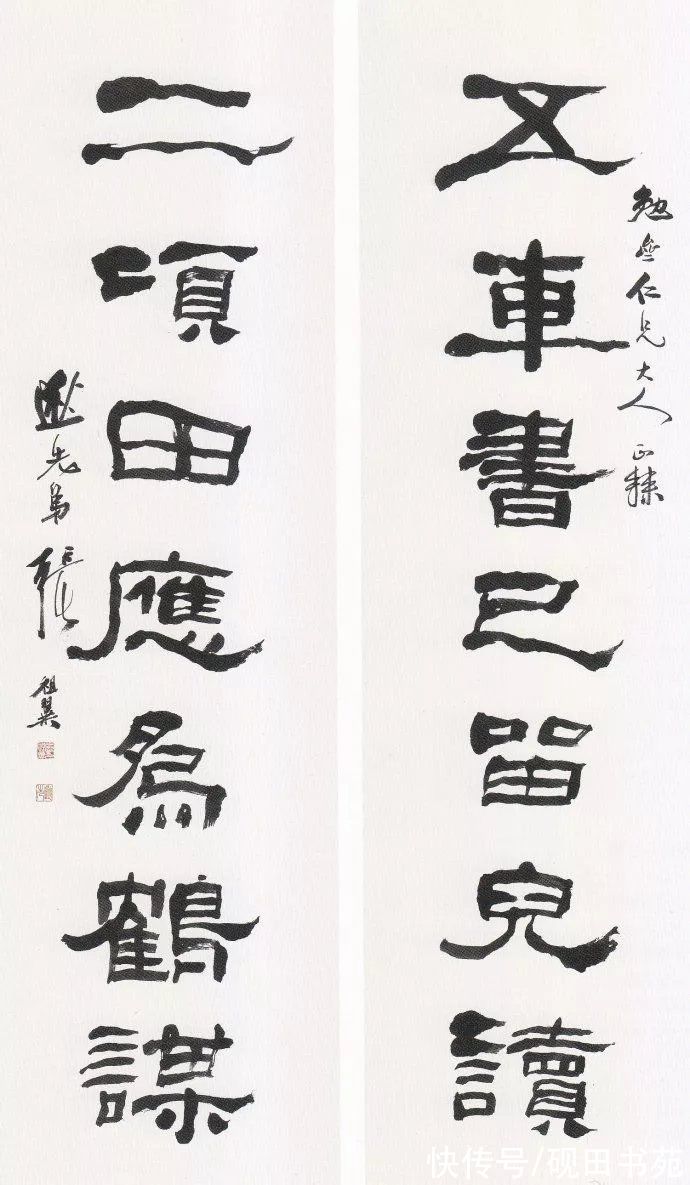 勉仁兄大人正隸
五車書已留兒讀
二頃田應為鶴謀
逖先弟張祖翼
快传号/砚田书苑